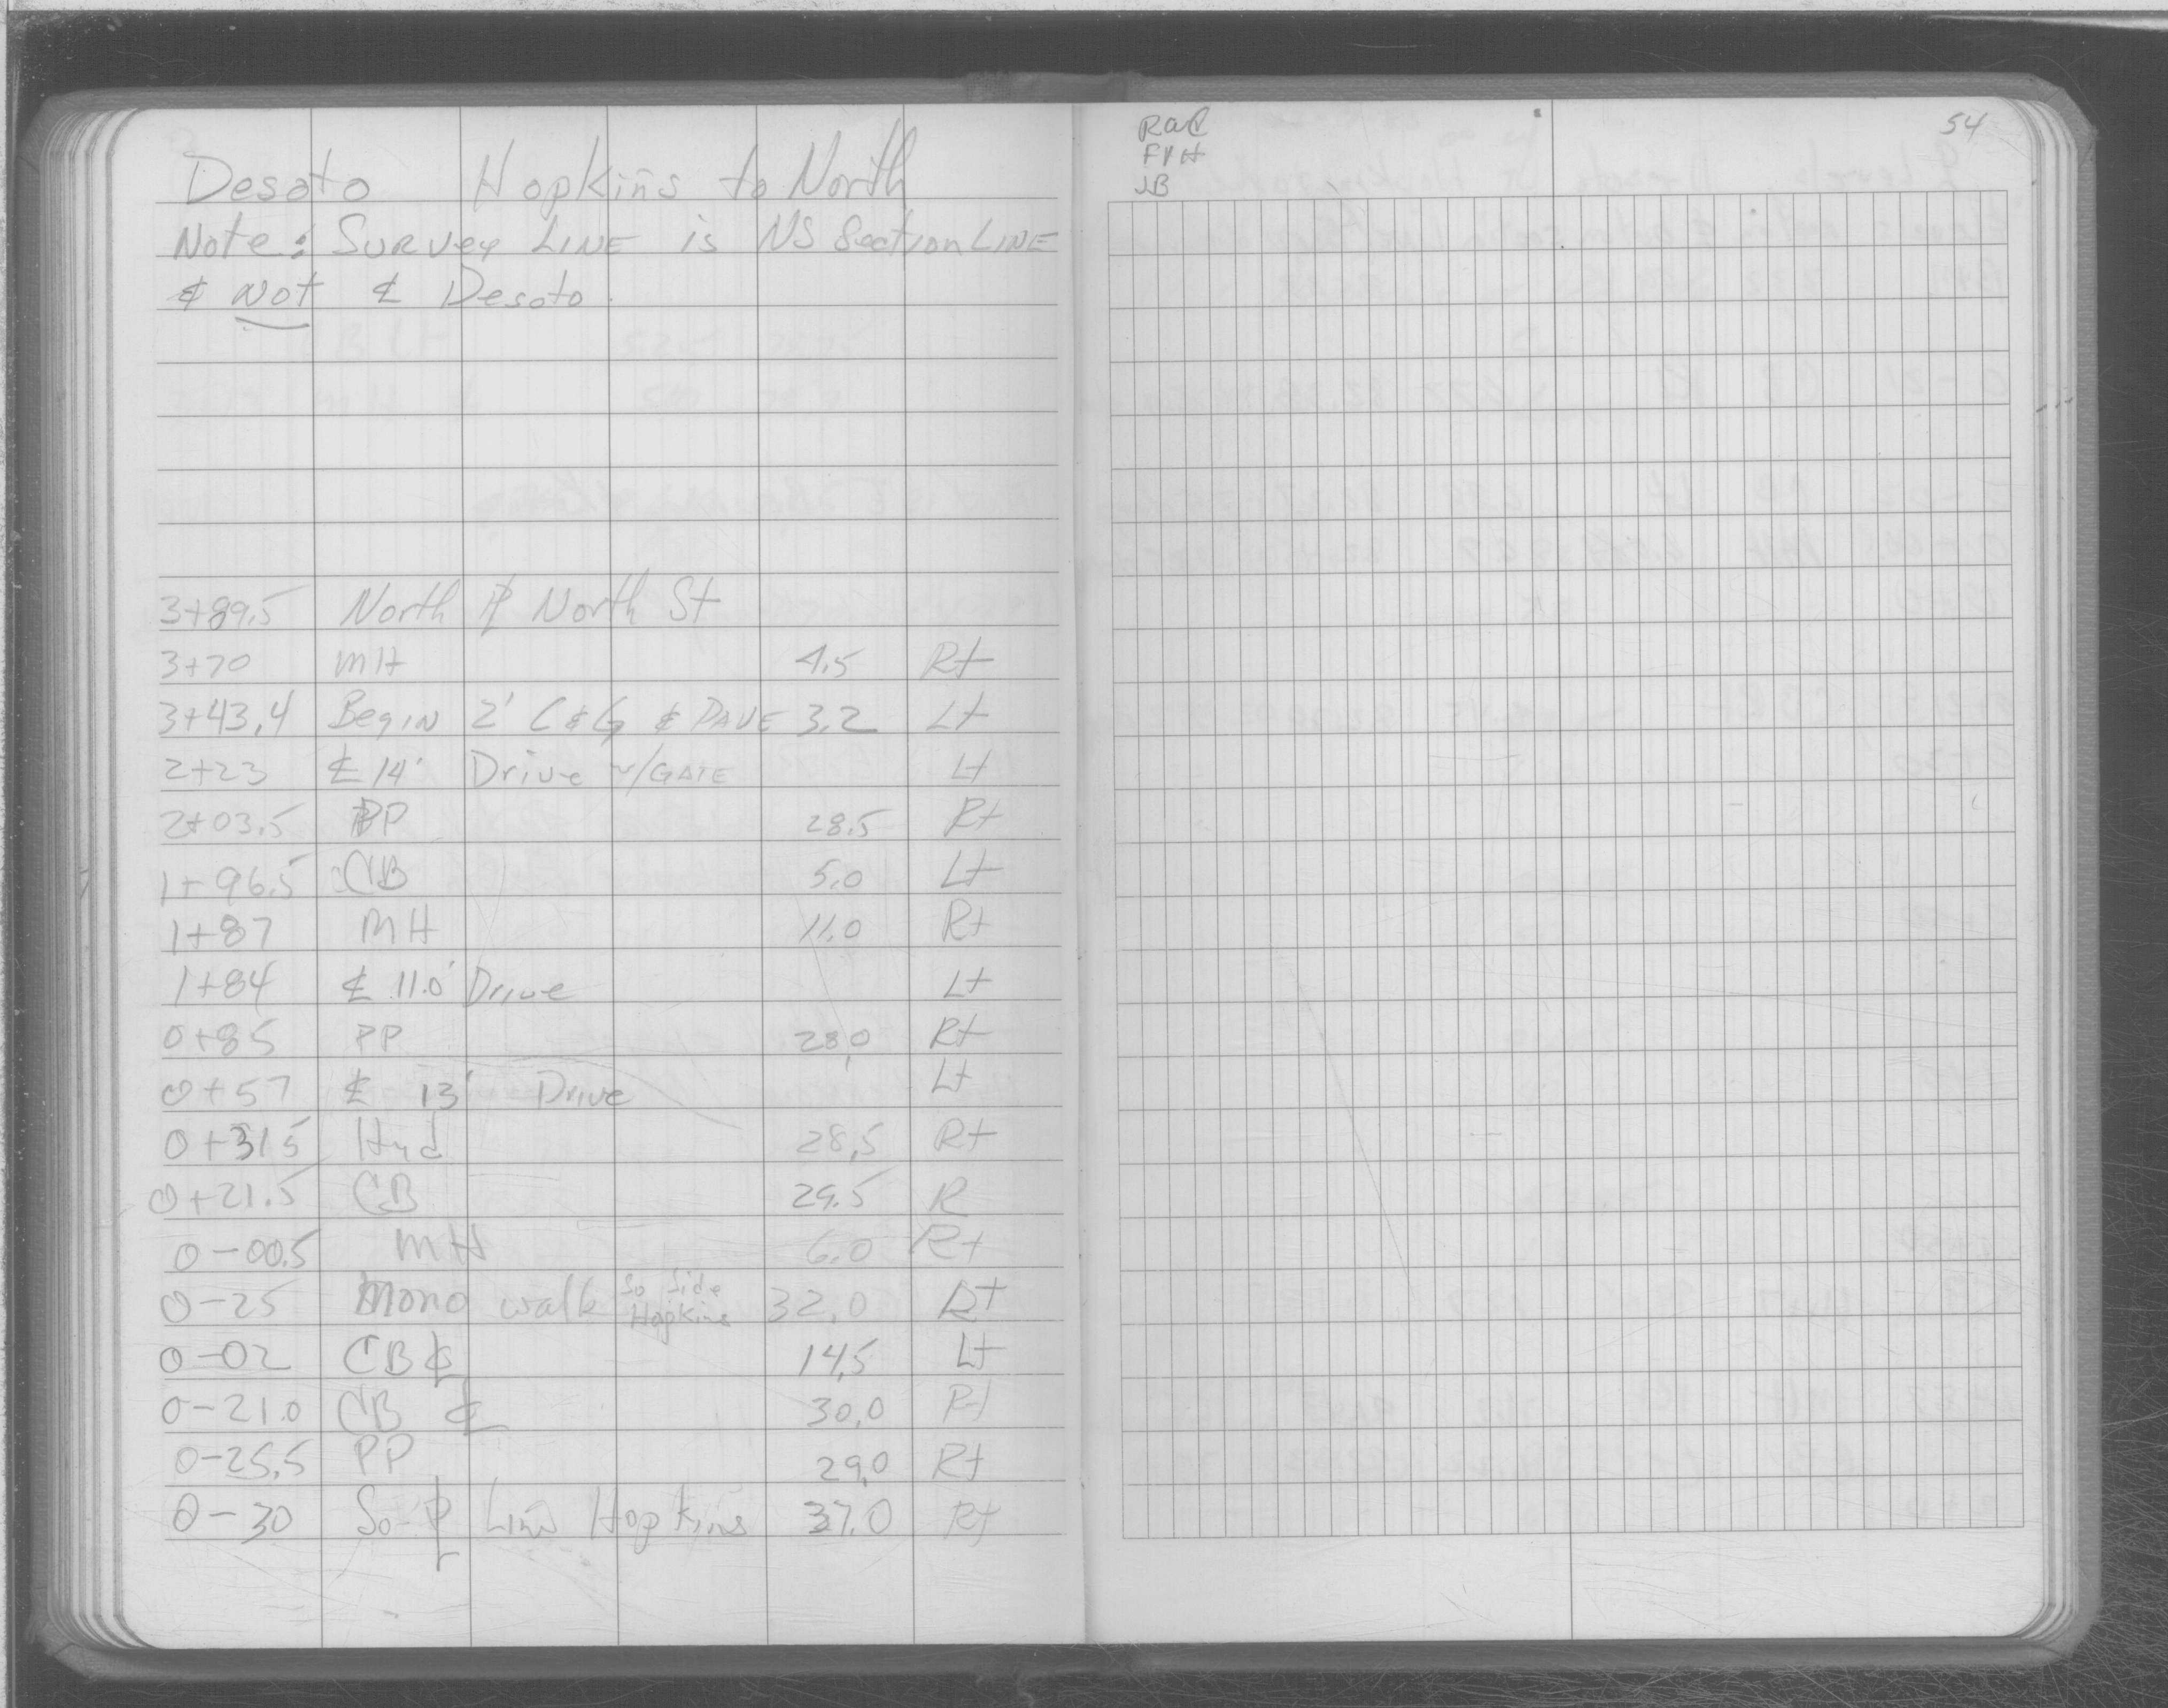 Desoto Hopkins to North
Note: Survey Line is NS Section Line
& Not ℄ Desoto.
3+89.5 North ⅊ North St
3+70 MH 4.5 Rt
3+43.4 Begin 2' C&G & PAVE 3.2 Lt
2+23 ℄ 14' Drive w/GATE Lt
2+03.5 PP 28.5 Rt
1+96.5 CB 5.0 Lt
1+87 MH 11.0 Rt
1+84 ℄ 11.0' Drive Lt
0+85 PP 28.0 Rt
0+57 ℄ 13' Drive Lt
0+31.5 Hyd 28.5 Rt
0+21.5 CB 29.5 R
0-00.5 MH 6.0 Rt
0-25 Mono walk So Side Hopkins 32.0 Rt
0-02 CB ℄ 14.5 Lt
0-21.0 CB ℄ 30.0 Rt
0-25.5 PP 29.0 Rt
0-30 So ⅊ Line Hopkins 37.0 Rt
54
JB